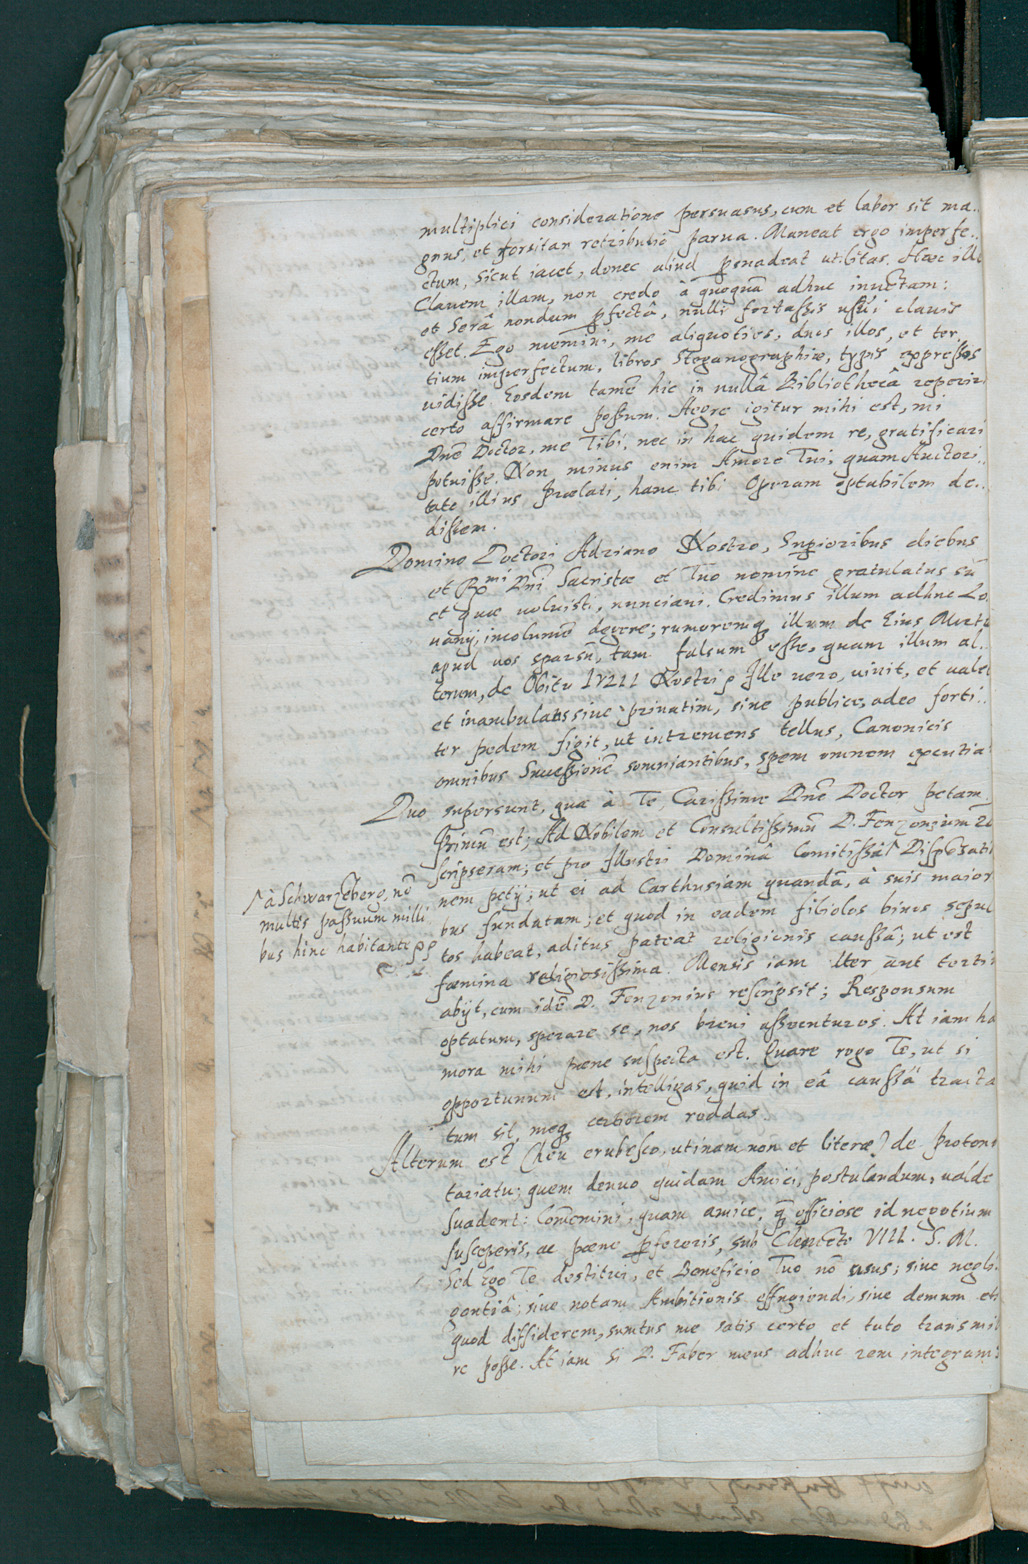 multiplici consideratione persuasus, cum et labor sit ma..
gnus, et forsitan retributio parua. Maneat ergo imperfe..
ctum, sicut iacet, donec aliud persuadeat utilitas. Haec illi
Clauem illam, non credo à quoquā adhuc inuentam:
et Serâ nondum perfectâ, nulli fortassis usui clauis
esset. Ego memini, me aliquoties, duos illos, et ter,
tium imperfectum, libros Steganographiæ, typis expressos
uidisse. Eosdem tamē hic in nullâ Bibliothecâ reperiri
certo affirmare possum. Aegre igitur mihi est, mi
Dnē Doctor, me Tibi, nec in hac quidem re, gratificari
potuisse. Non minus enim Amore Tui, quam Auctori..
tate illius Prælati, hanc tibi Operam optabilem de..
dissem.
Domino Doctori Adriano Nostro, Superioribus diebus
et Rmi Dni Sacristæ et Tuo nomine gratulatus sū
et quæ uoluisti, nunciaui. Credimus illum adhuc Lo
uanij, incolumē degere; rumoremq illum de Eius Morte
apud uos sparsū, tam falsum esse, quam illum al..
terum, de Obitu Nostri. Ille uero, uiuit, et ualet
et inambulans siue priuatim, siue publice, adeo forti..
ter pedem figit, ut intremens tellus, Canonicis
omnibus Successionē somniantibus, spem omnem excutia
Duo supersunt, quæ à Te, Carissime Dnē Doctor petam
Primū est; Ad Nobilem et Consultissimū D. Fenzonium
scripseram; et pro Illustri Dominâ Comitissâ ^ Dispēsati
^ à Schwarzēberg, nō
multis passuum milli
bus hinc habitante
nem petij; ut ei ad Carthusiam quandā, à suis maior
bus fundatam; et quod in eadem filiolos binos sepul
tos habeat, aditus pateat religionis caussâ; ut est
fæmina religiosissima. Mensis iam alter aut tertiu
abijt, cum idē D. Fenzonius rescripsit; Responsum
optatum, sperare se, nos breui assecuturos. At iam hæ
mora mihi pæne suspecta est. Quare rogo Te, ut si
opportunum est, intelligas, quid in eâ caussâ tracta
tum sit, meq certiorem reddas.
Alterum est (heu erubesco, utinam non et literæ) de Proton
tariatu; quem denuo quidam Amici, postulandum, ualde
suadent: Commemini, quam amice, q̄ officiose id negotium
susceperis, ac pæne perfeceris, sub Clemēte VIII. S. M.
Sed Ego Te destitui, et Beneficio Tuo nō usus; siue negli
gentiâ; siue notam Ambitionis effugiendi, siue demum eti
quod diffiderem, sumtus me satis certo et tuto transmit
re posse. At iam si D. Faber meus adhuc rem integram